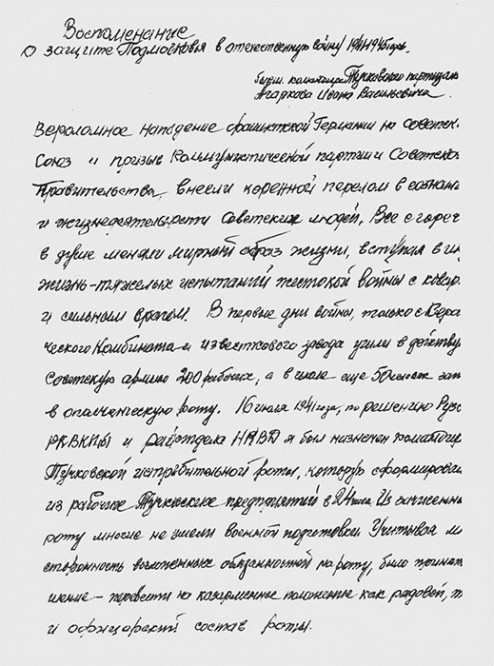 Воспоменание
о защите Подмосковья в отечественную войну 1941-1945годы.
бывш. командира Тучковского партизанс
Агадкова Ивана Васильевича.
Вероломное нападение фашистской Германии на Советск
Союз и призыв Коммунистической партии и Советско
Правительства, внесли коренной перелом в сознани
и жизнедеятельности Советских людей. Все с гореч
в душе меняли мирный образ жизни, вступая в
жизнь-тяжелых испытаний жестокой войны с ковар
и сильным врагом. В первые дни войны, только с Кера
ческого Комбината и известкового завода ушли в действу
Советскую армию 200 рабочих, а в июле еще 50 человек зап
в ополченческую роту. 16 июля 1941 года, по решению Рузс
РКВКПб и райотдела НКВД я был назначен командир
Тучковской истребительной роты, которую сформировали
из рабочих Тучковских предприятий в 24 часа. Из зачисленны
роту многие не имели военной подготовки. Учитывая
сторонность возложенных обязанностей на роту, было принят
шение - перевести на казарменное положение как рядовой, т
и офицерский состав роты.